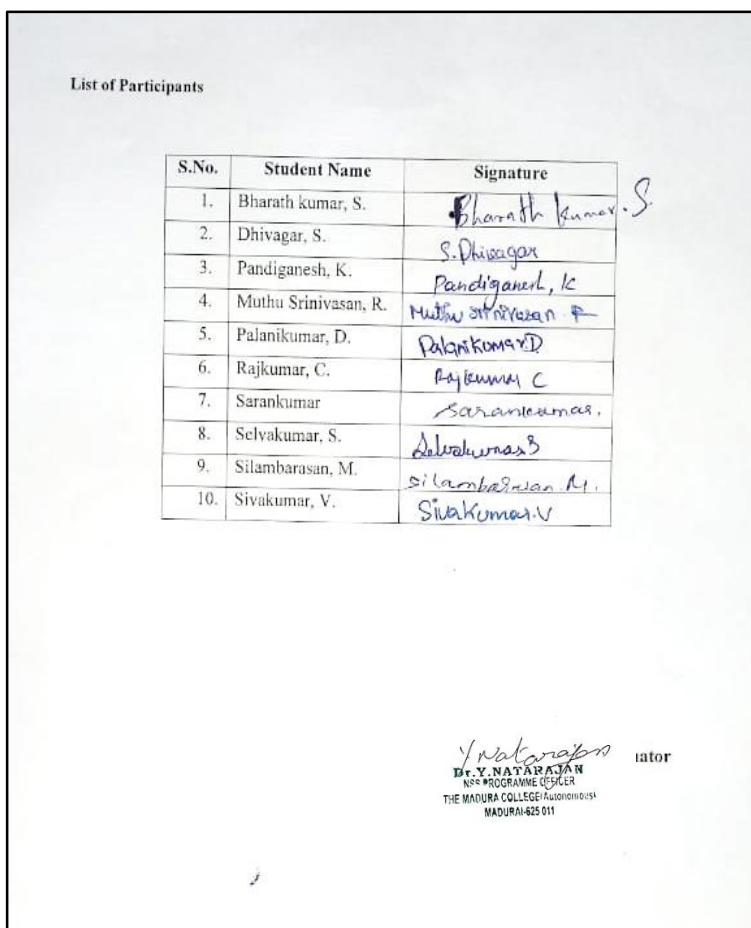 List of Participants
S.No. Student Name Signature
1. Bharath kumar, S. Bharath kumar. S
2. Dhivagar, S. S. Dhivagar
3. Pandiganesh, K. Pandiganesh, K
4. Muthu Srinivasan, R. Muthu Srinivasan R
5. Palanikumar, D. Palanikumar.D
6. Rajkumar, C. Rajkumar C
7. Sarankumar Sarankumar.
8. Selvakumar, S. Selvakumar S
9. Silambarasan, M. Silambarasan. M.
10. Sivakumar, V. Sivakumar.V
Y Natarajan
inator
Dr.Y.NATARAJAN
NSS PROGRAMME OFFICER
THE MADURA COLLEGE(Autonomous)
MADURAI-625 011